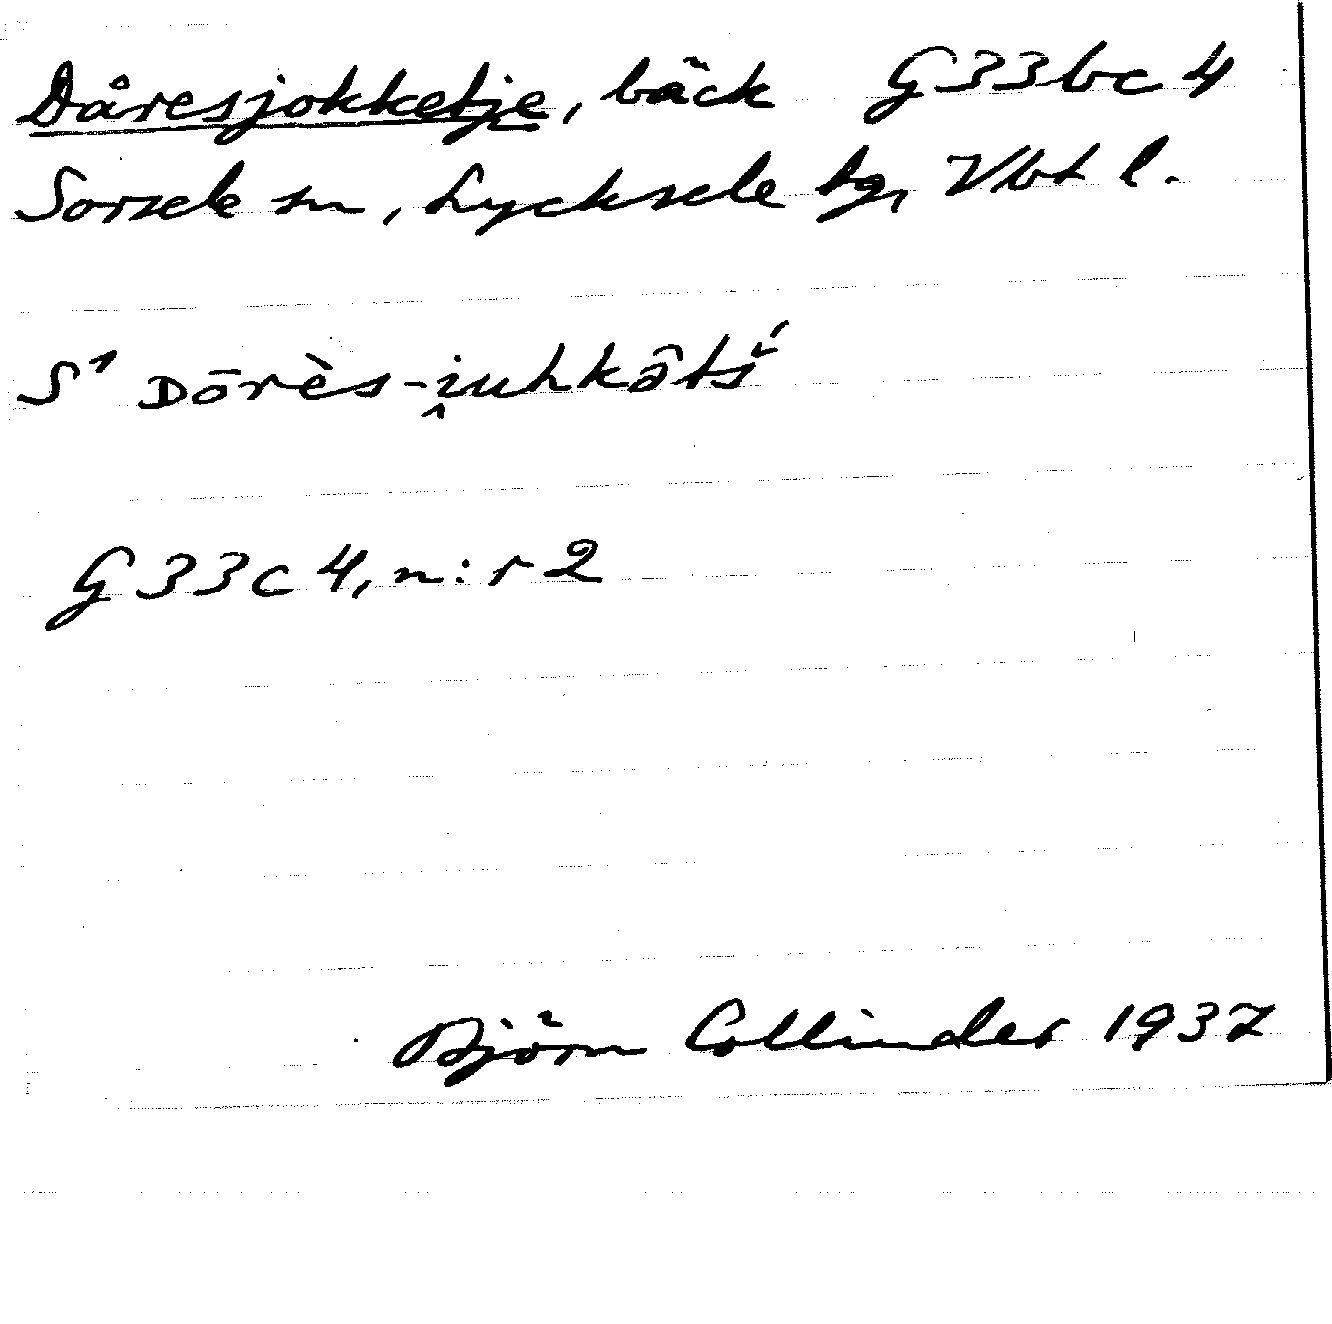 Dåresjokketje, bäck G33bc4
Sorsele sn, Lycksele tg, Vbt l.
S¹ Dōrès-i̭uhkât́s̀́
G33c4, n:r 2
Björn Collinder 1937